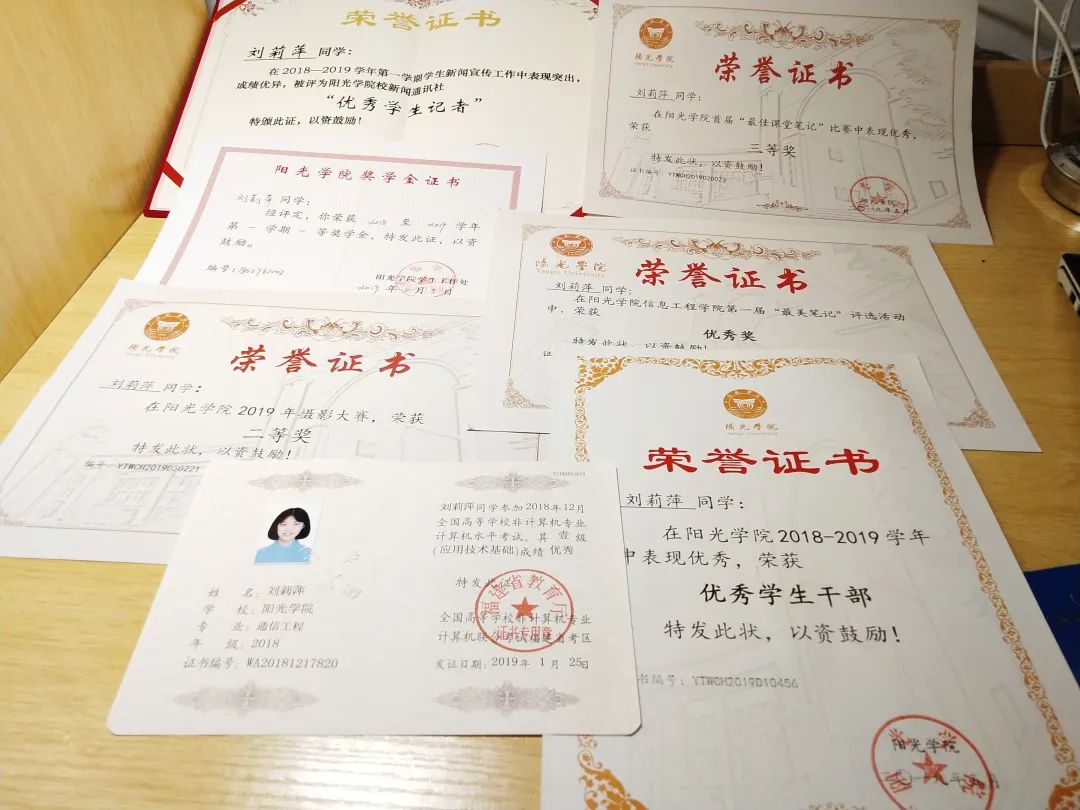 荣誉证书
刘莉萍 同学：
在2018—2019学年第一学期学生新闻宣传工作中表现突出，
成绩优异，被评为阳光学院校新闻通讯社
“优秀学生记者”
特颁此证，以资鼓励！
陽光學院
荣誉证书
刘莉萍 同学：
在阳光学院首届“最佳课堂笔记”比赛中表现优秀，
荣获
三等奖
特发此状，以资鼓励！
证书编号：YTWCH2019D20023
阳光学院
阳光学院奖学金证书
刘莉萍 同学：
经评定，你荣获 2018 至 2019 学年
第 一 学期 一 等奖学金，特发此证，以资
鼓励。
编号：
阳光学院学生工作处
2019 年 月 日
陽光學院
Yango University
荣誉证书
刘莉萍 同学：
在阳光学院信息工程学院第一届“最美笔记”评选活动
中，荣获
优秀奖
特发此状，以资鼓励！
证
陽光學院
荣誉证书
刘莉萍 同学：
在阳光学院2019年摄影大赛，荣获
二等奖
特发此状，以资鼓励！
编号：YTWCH2019D30221
刘莉萍同学参加2018年12月
全国高等学校非计算机专业
计算机水平考试。其 壹级
(应用技术基础)成绩 优秀
特发此证
全国高等学校非计算机专业
计算机联合考试福建省考区
发证日期：2019年 1 月 25日
福建省教育厅
证书专用章
姓 名：刘莉萍
学 校：阳光学院
专 业：通信工程
年 级：2018
证书编号：WA20181217820
陽光學院
Yango University
荣誉证书
刘莉萍 同学：
在阳光学院2018-2019学年
中表现优秀，荣获
优秀学生干部
特发此状，以资鼓励！
书编号：YTWCH2019D10456
阳光学院